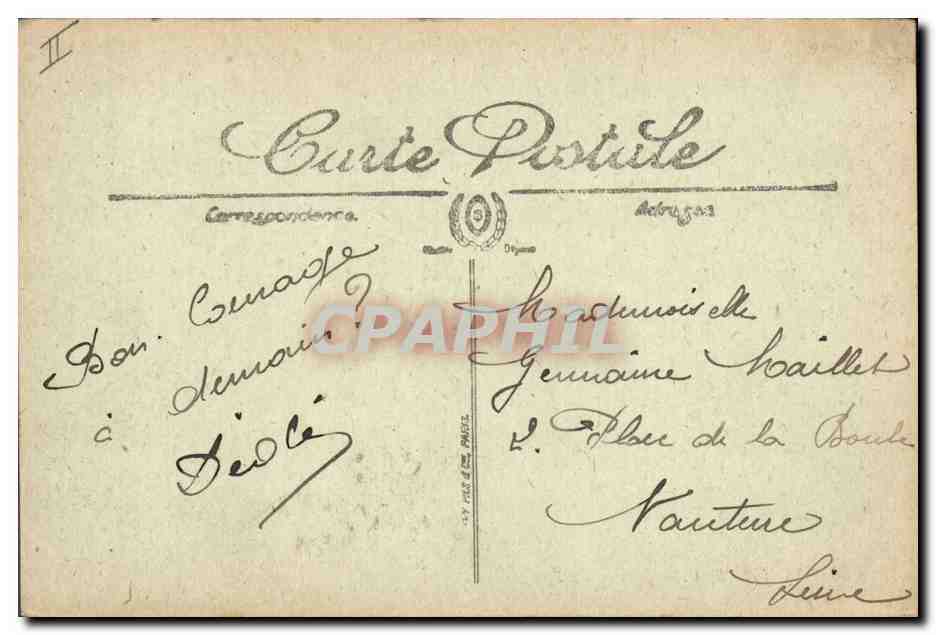 II
Carte Postale
Correspondance
Adresse
Bon Courage
à demain ?
Dédé
CPAPHIL
Mademoiselle
Germaine Maillet
2. Place de la Boule
Nanterre
Seine
FILS & Cie PARIS